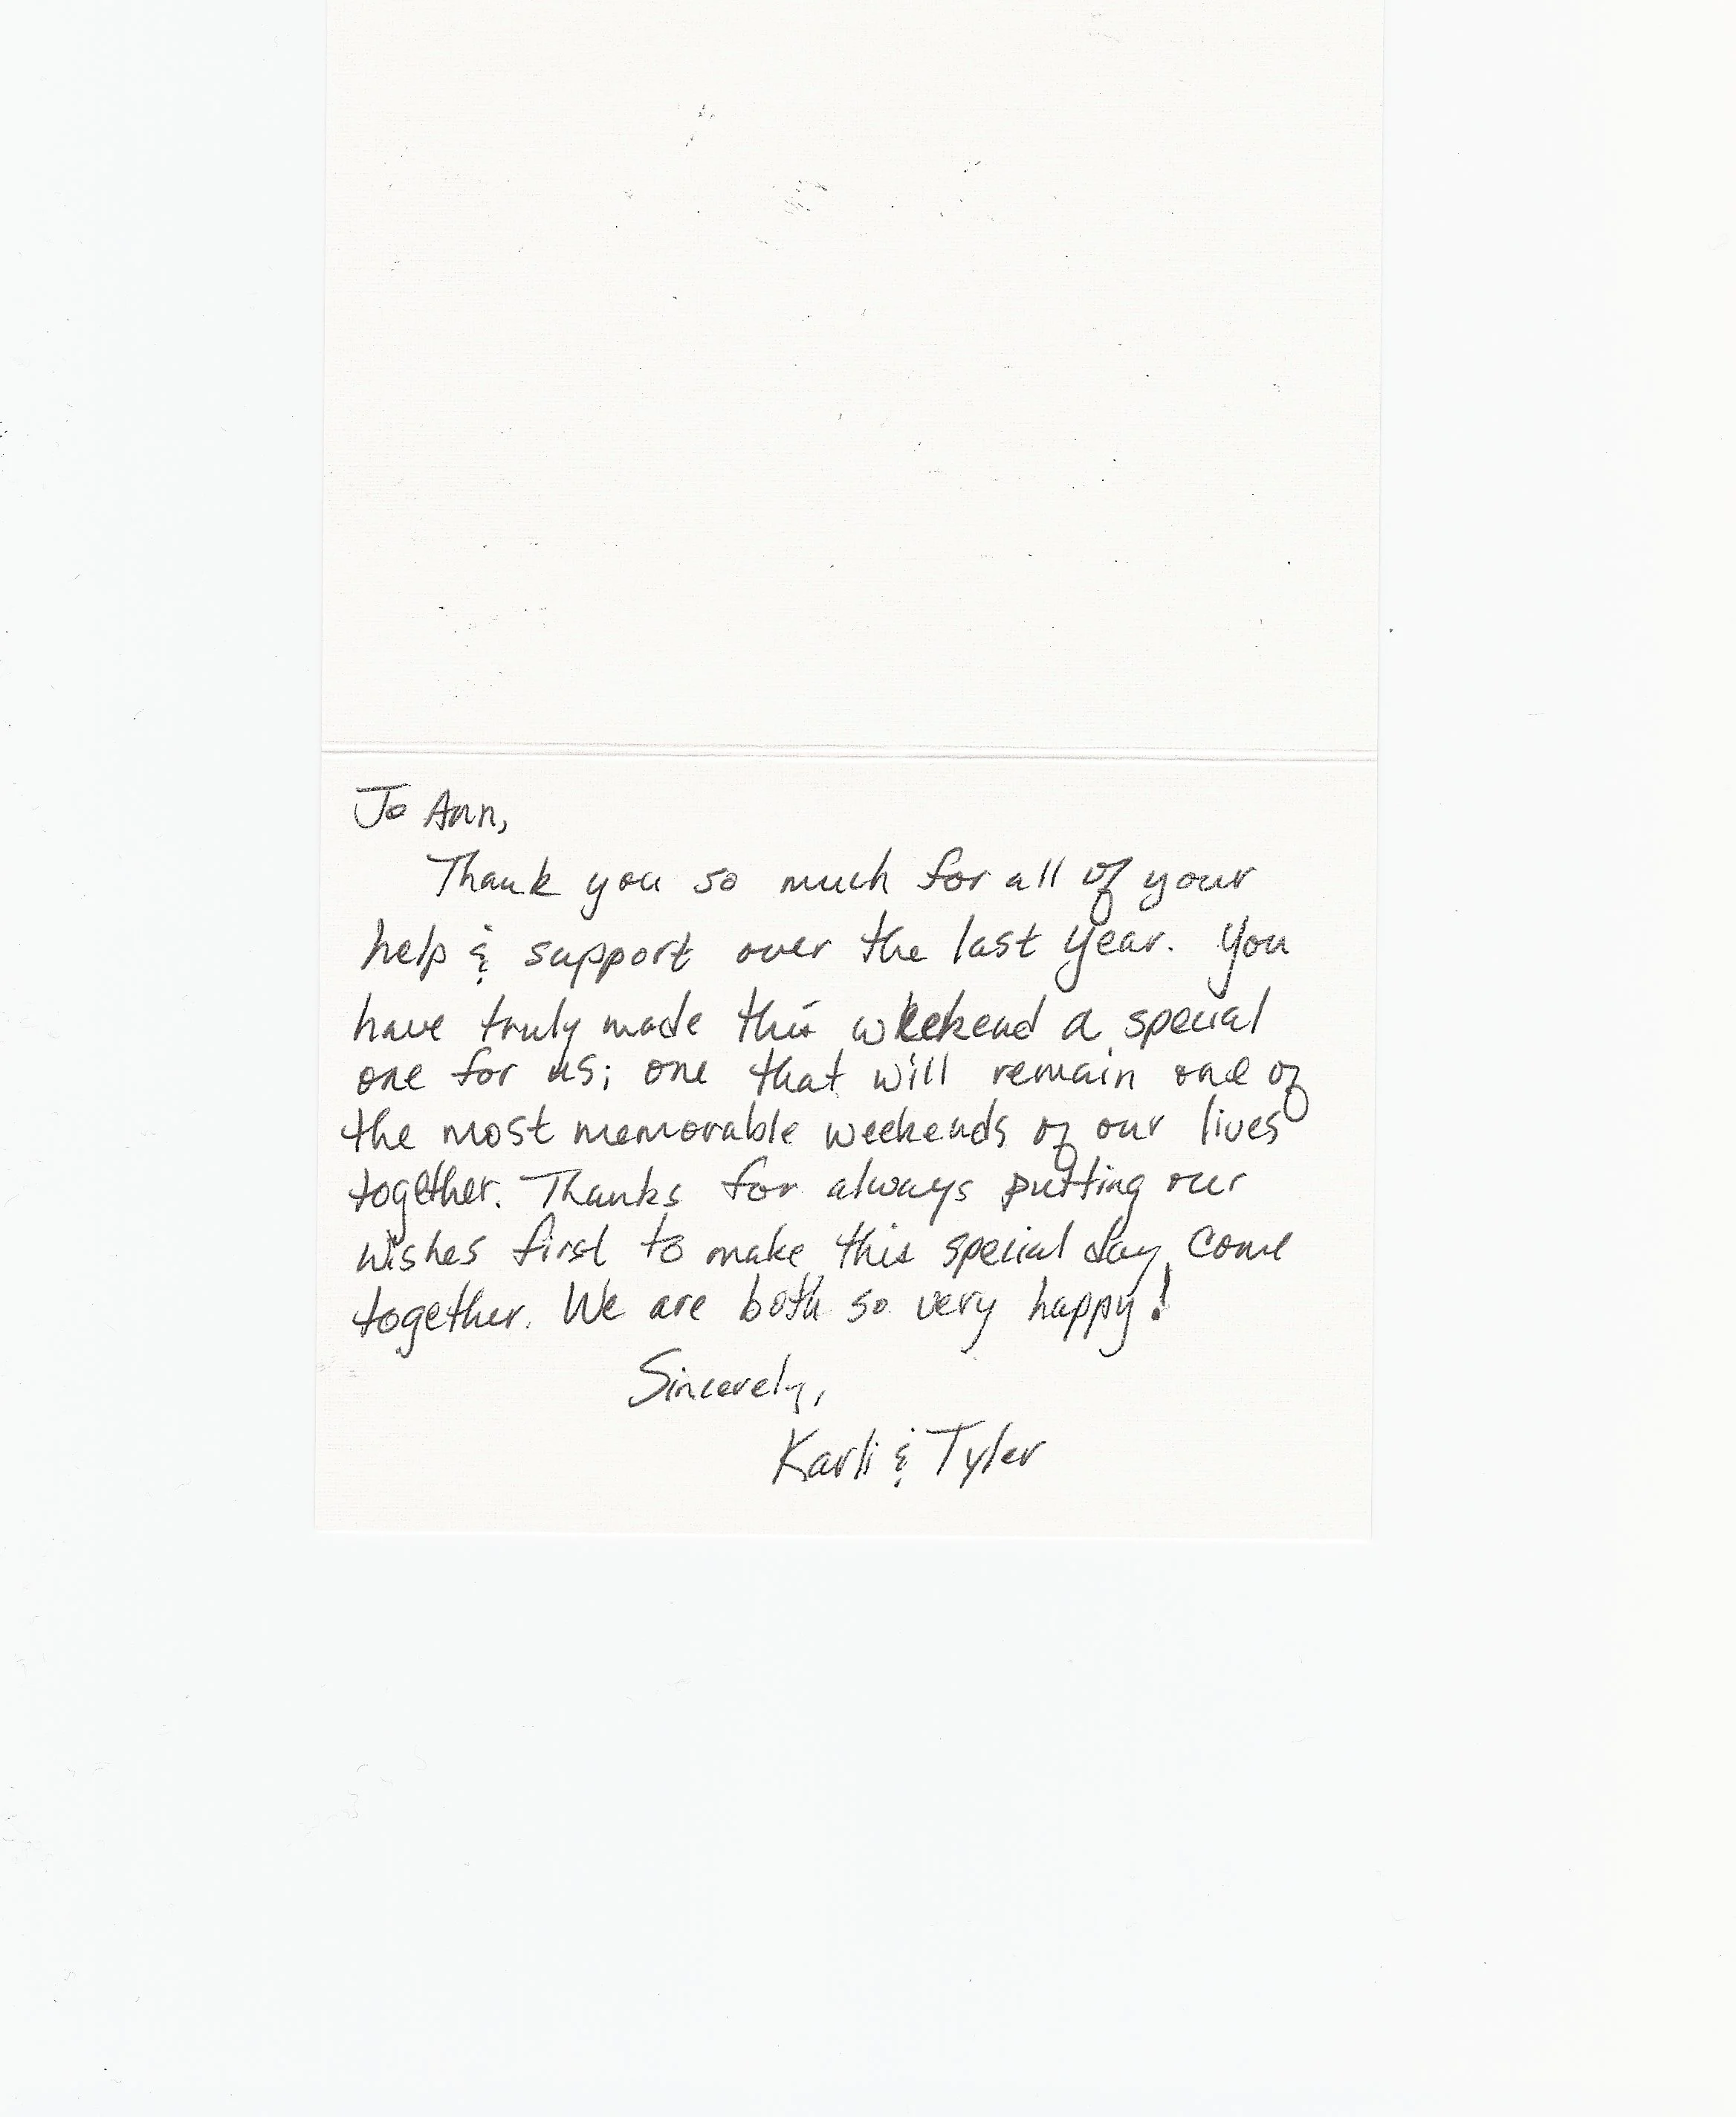 Jo Ann,
Thank you so much for all of your
help & support over the last year. You
have truly made this weekend a special
one for us; one that will remain one of
the most memorable weekends of our lives
together. Thanks for always putting our
wishes first to make this special day come
together. We are both so very happy!
Sincerely,
Karli & Tyler